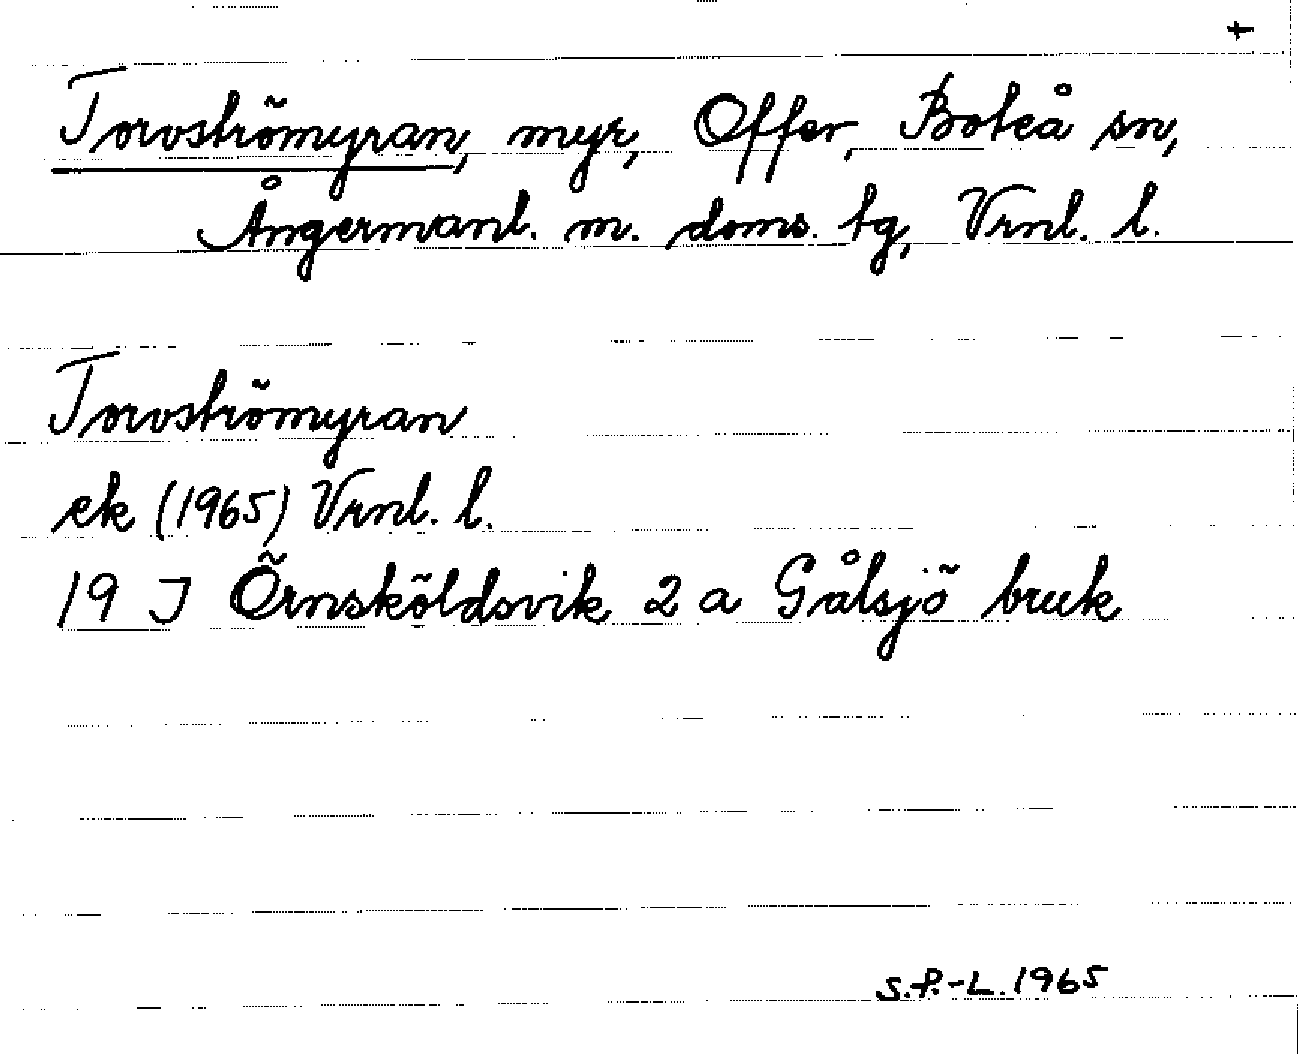 +
Torvströmyran, myr, Offer, Boteå sn,
Ångermanl. m. doms. tg, Vrnl. l.
Torvströmyran
ek (1965) Vrnl. l.
19 J Örnsköldsvik 2 a Gålsjö bruk
S.P.-L. 1965